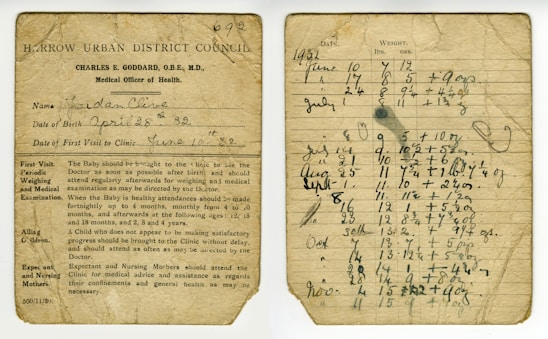 692
HARROW URBAN DISTRICT COUNCIL
CHARLES E. GODDARD, O.B.E., M.D.,
Medical Officer of Health.
Name Jordan Clive
Date of Birth April 28th 32
Date of First Visit to Clinic June 10th 32
First Visit. The Baby should be brought to the Clinic to see the
Periodic Doctor as soon as possible after birth and should
Weighing attend regularly afterwards for weighing and medical
and Medical examination as may be directed by the Doctor.
Examination. When the Baby is healthy attendances should be made
fortnightly up to 6 months, monthly from 6 to 12
months, and afterwards at the following ages: 12, 15
and 18 months, and 2, 3 and 4 years.
Ailing A Child who does not appear to be making satisfactory
Children. progress should be brought to the Clinic without delay,
and should attend as often as may be directed by the
Doctor.
Expectant Expectant and Nursing Mothers should attend the
and Nursing Clinic for medical advice and assistance as regards
Mothers. their confinements and general health as may be
necessary.
DATE. WEIGHT.
lbs. ozs.
1932
June 10 7 12
" 17 8 5 + 9 ozs.
" 24 8 9¼ + 4¼
July 1 8 11
" 8 9 5 + 10 oz
10½ + 5
" 21 10
Aug 25 11
Sept 1. 11 10 + 2
8 11
" 16 12 + 5
" 23 12 8¾
30th 13 2
Oct 7 13 7 + 5
14 13
14 1
28 14 9 + 8 oz
Nov 4 15 + 9 oz
11 15